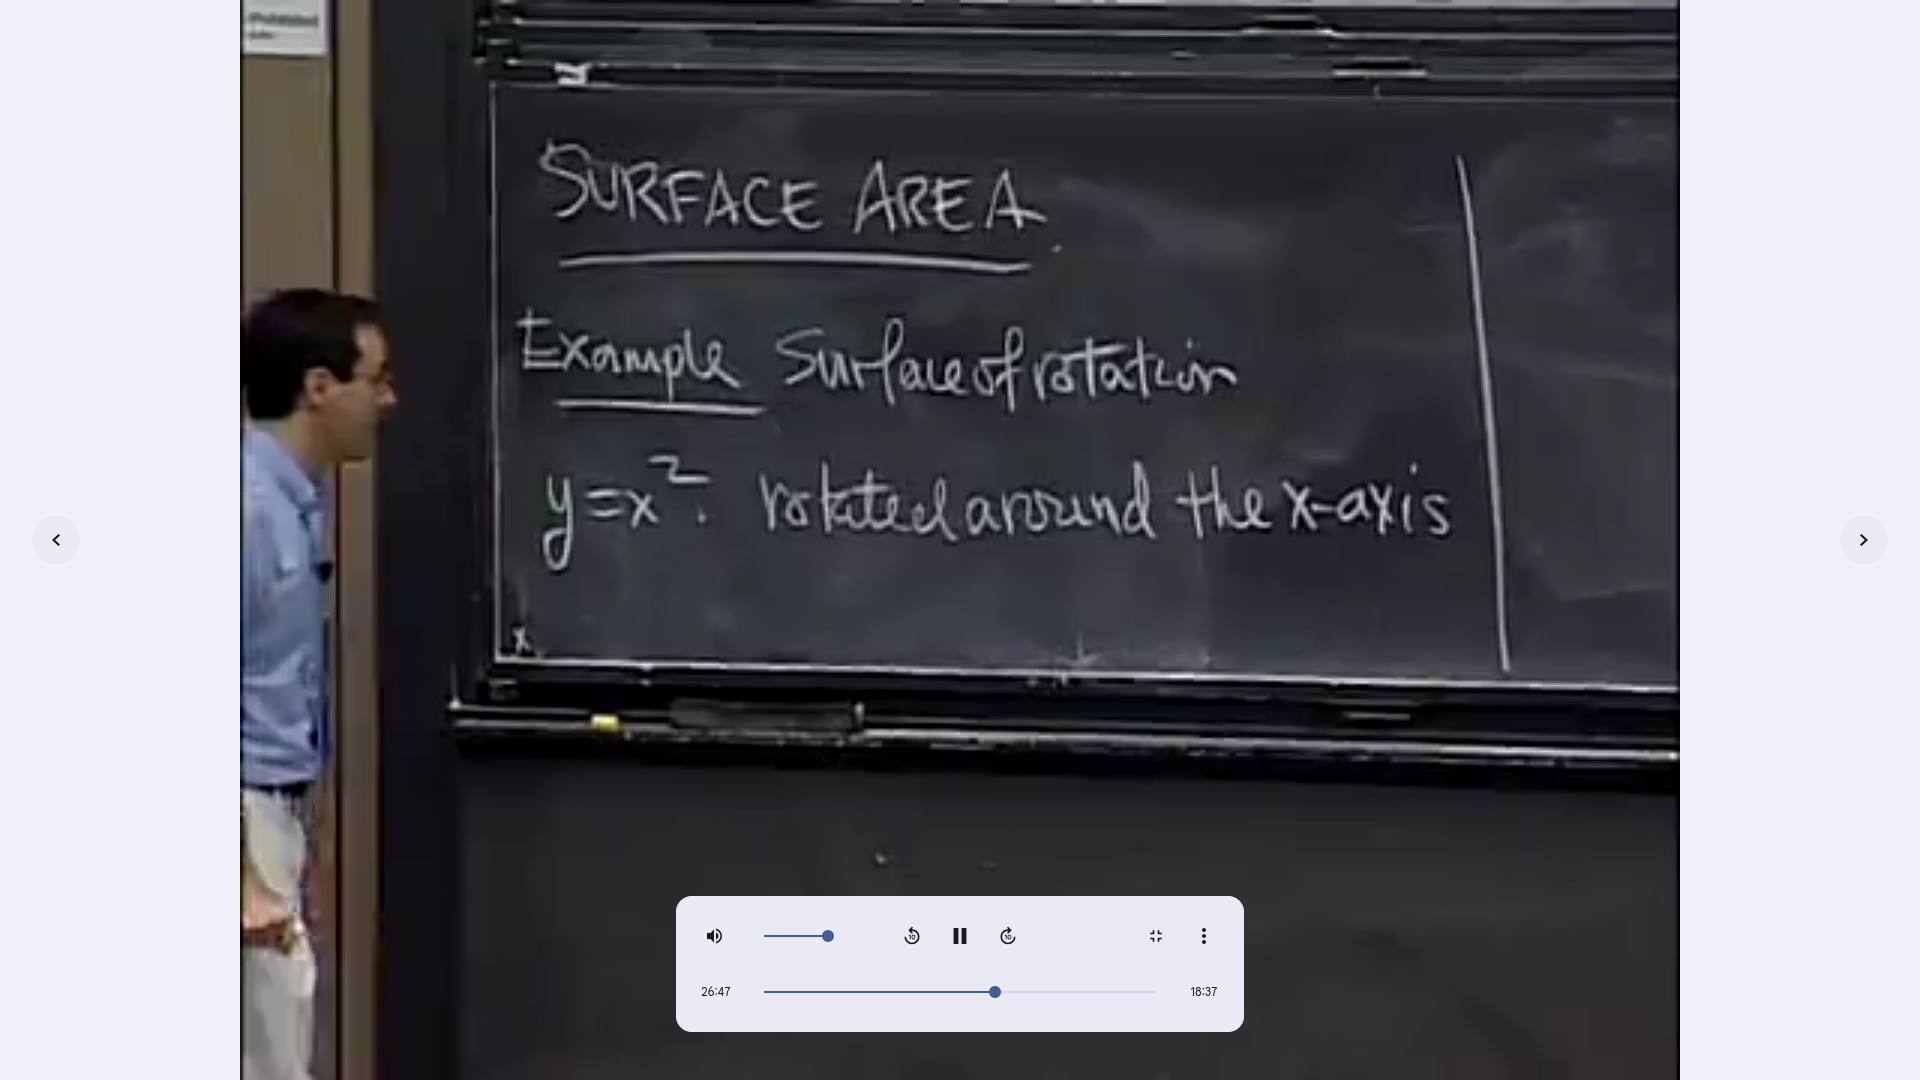 SURFACE AREA
Example Surface of rotation
y=x²: rotated around the x-axis
10
10
26:47
18:37